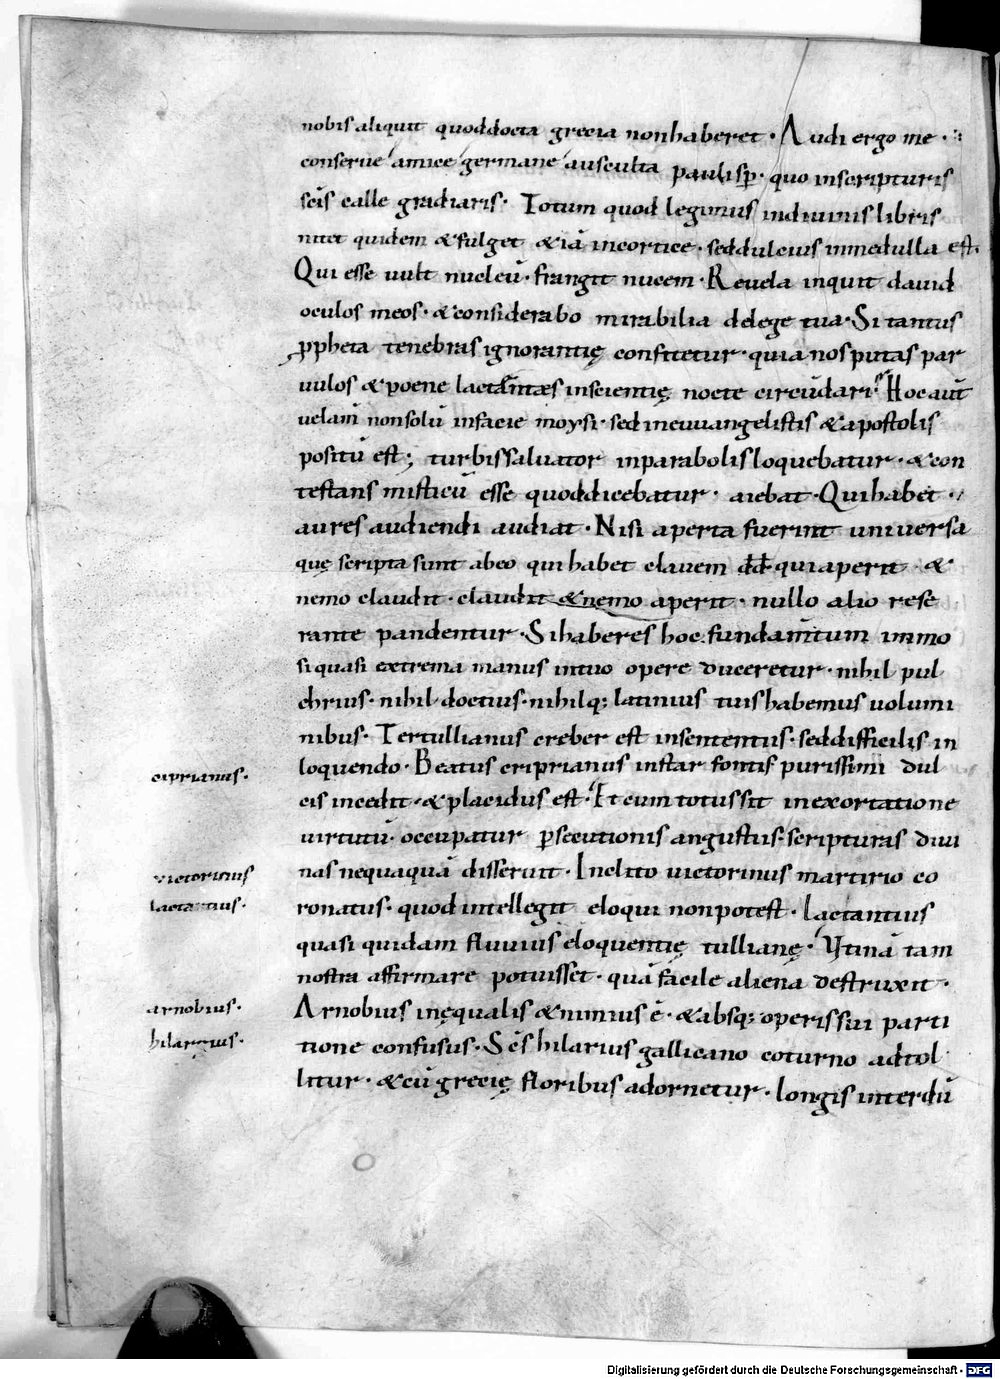 nobis aliquit quod docta grecia non haberet · Audi ergo me ·
conserue amice germane ausculta paulisꝑ · quo in scripturis
sc̄is calle gradiaris · Totum quod legimus in diuinis libris
nitet quidem & fulget & iā in cortice · sed dulcius in medulla est ·
Qui esse uult nucleū · frangit nucem · Reuela inquit dauid
oculos meos · & considerabo mirabilia de lege tua · Si tantus
ꝓpheta tenebras ignorantię confitetur · quia nos putas par
uulos & poene lactantes inscientię nocte circūdari · Hoc aut̄
uelam̄ non solū in facie moysi · sed in euuangelistis & apostolis
positū est; turbis saluator in parabolis loquebatur · & con
testans misticū esse quod dicebatur · aiebat · Qui habet ·
aures audiendi audiat · Nisi aperta fuerint uniuersa
quę scripta sunt ab eo qui habet clauem dd̄ qui aperit · &
nemo claudit · claudit & nemo aperit · nullo alio rese
rante pandentur · Si haberes hoc fundam̄tum immo
si quasi extrema manus in tuo opere duceretur · nihil pul
chrius · nihil doctius · nihilq; latinius tuis habemus uolumi
nibus · Tertullianus creber est in sententiis · sed difficilis in
loquendo · Beatus criprianus instar fontis purissimi dul
ciprianus ·
cis incedit · & placidus est · Et cum totus sit in exortatione
uirtutū · occupatur ꝑsecutionis angustiis · scripturas diui
nas nequaquā disseruit · Inclito uictorinus martirio co
uictorinus
ronatus · quod intellegit eloqui non potest · Lactantius
lactantius ·
quasi quidam fluuius eloquentię tullianę · Vtinā tam
nostra affirmare potuisset · quā facile aliena destruxit ·
Arnobius inęqualis & nimius ē · & absq; operis sui parti
arnobius ·
tione confusus · Sc̄s hilarius gallicano coturno adtol
hilarius ·
litur · & cū grecię floribus adornetur · longis interdū
Digitalisierung gefördert durch die Deutsche Forschungsgemeinschaft - DFG